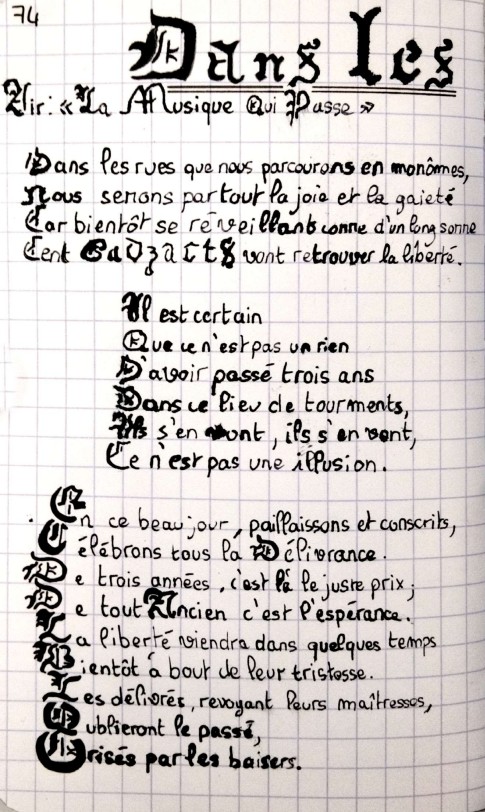 74
Dans les
Air : « La Musique Qui Passe »
Dans les rues que nous parcourons en monômes,
Nous semons partout la joie et la gaieté
Car bientôt se réveillant comme d'un long somme
Cent Gadzarts vont retrouver la liberté.
Il est certain
Que ce n'est pas un rien
D'avoir passé trois ans
Dans ce lieu de tourments,
Ils s'en vont, ils s'en vont,
Ce n'est pas une illusion.
En ce beau jour, paillaissons et conscrits,
Célébrons tous la Délivrance.
De trois années, c'est là le juste prix ;
De tout Ancien c'est l'espérance.
La liberté viendra dans quelques temps
Bientôt à bout de leur tristesse.
Les délivrés, revoyant leurs maîtresses,
Oublieront le passé,
Grisés par les baisers.